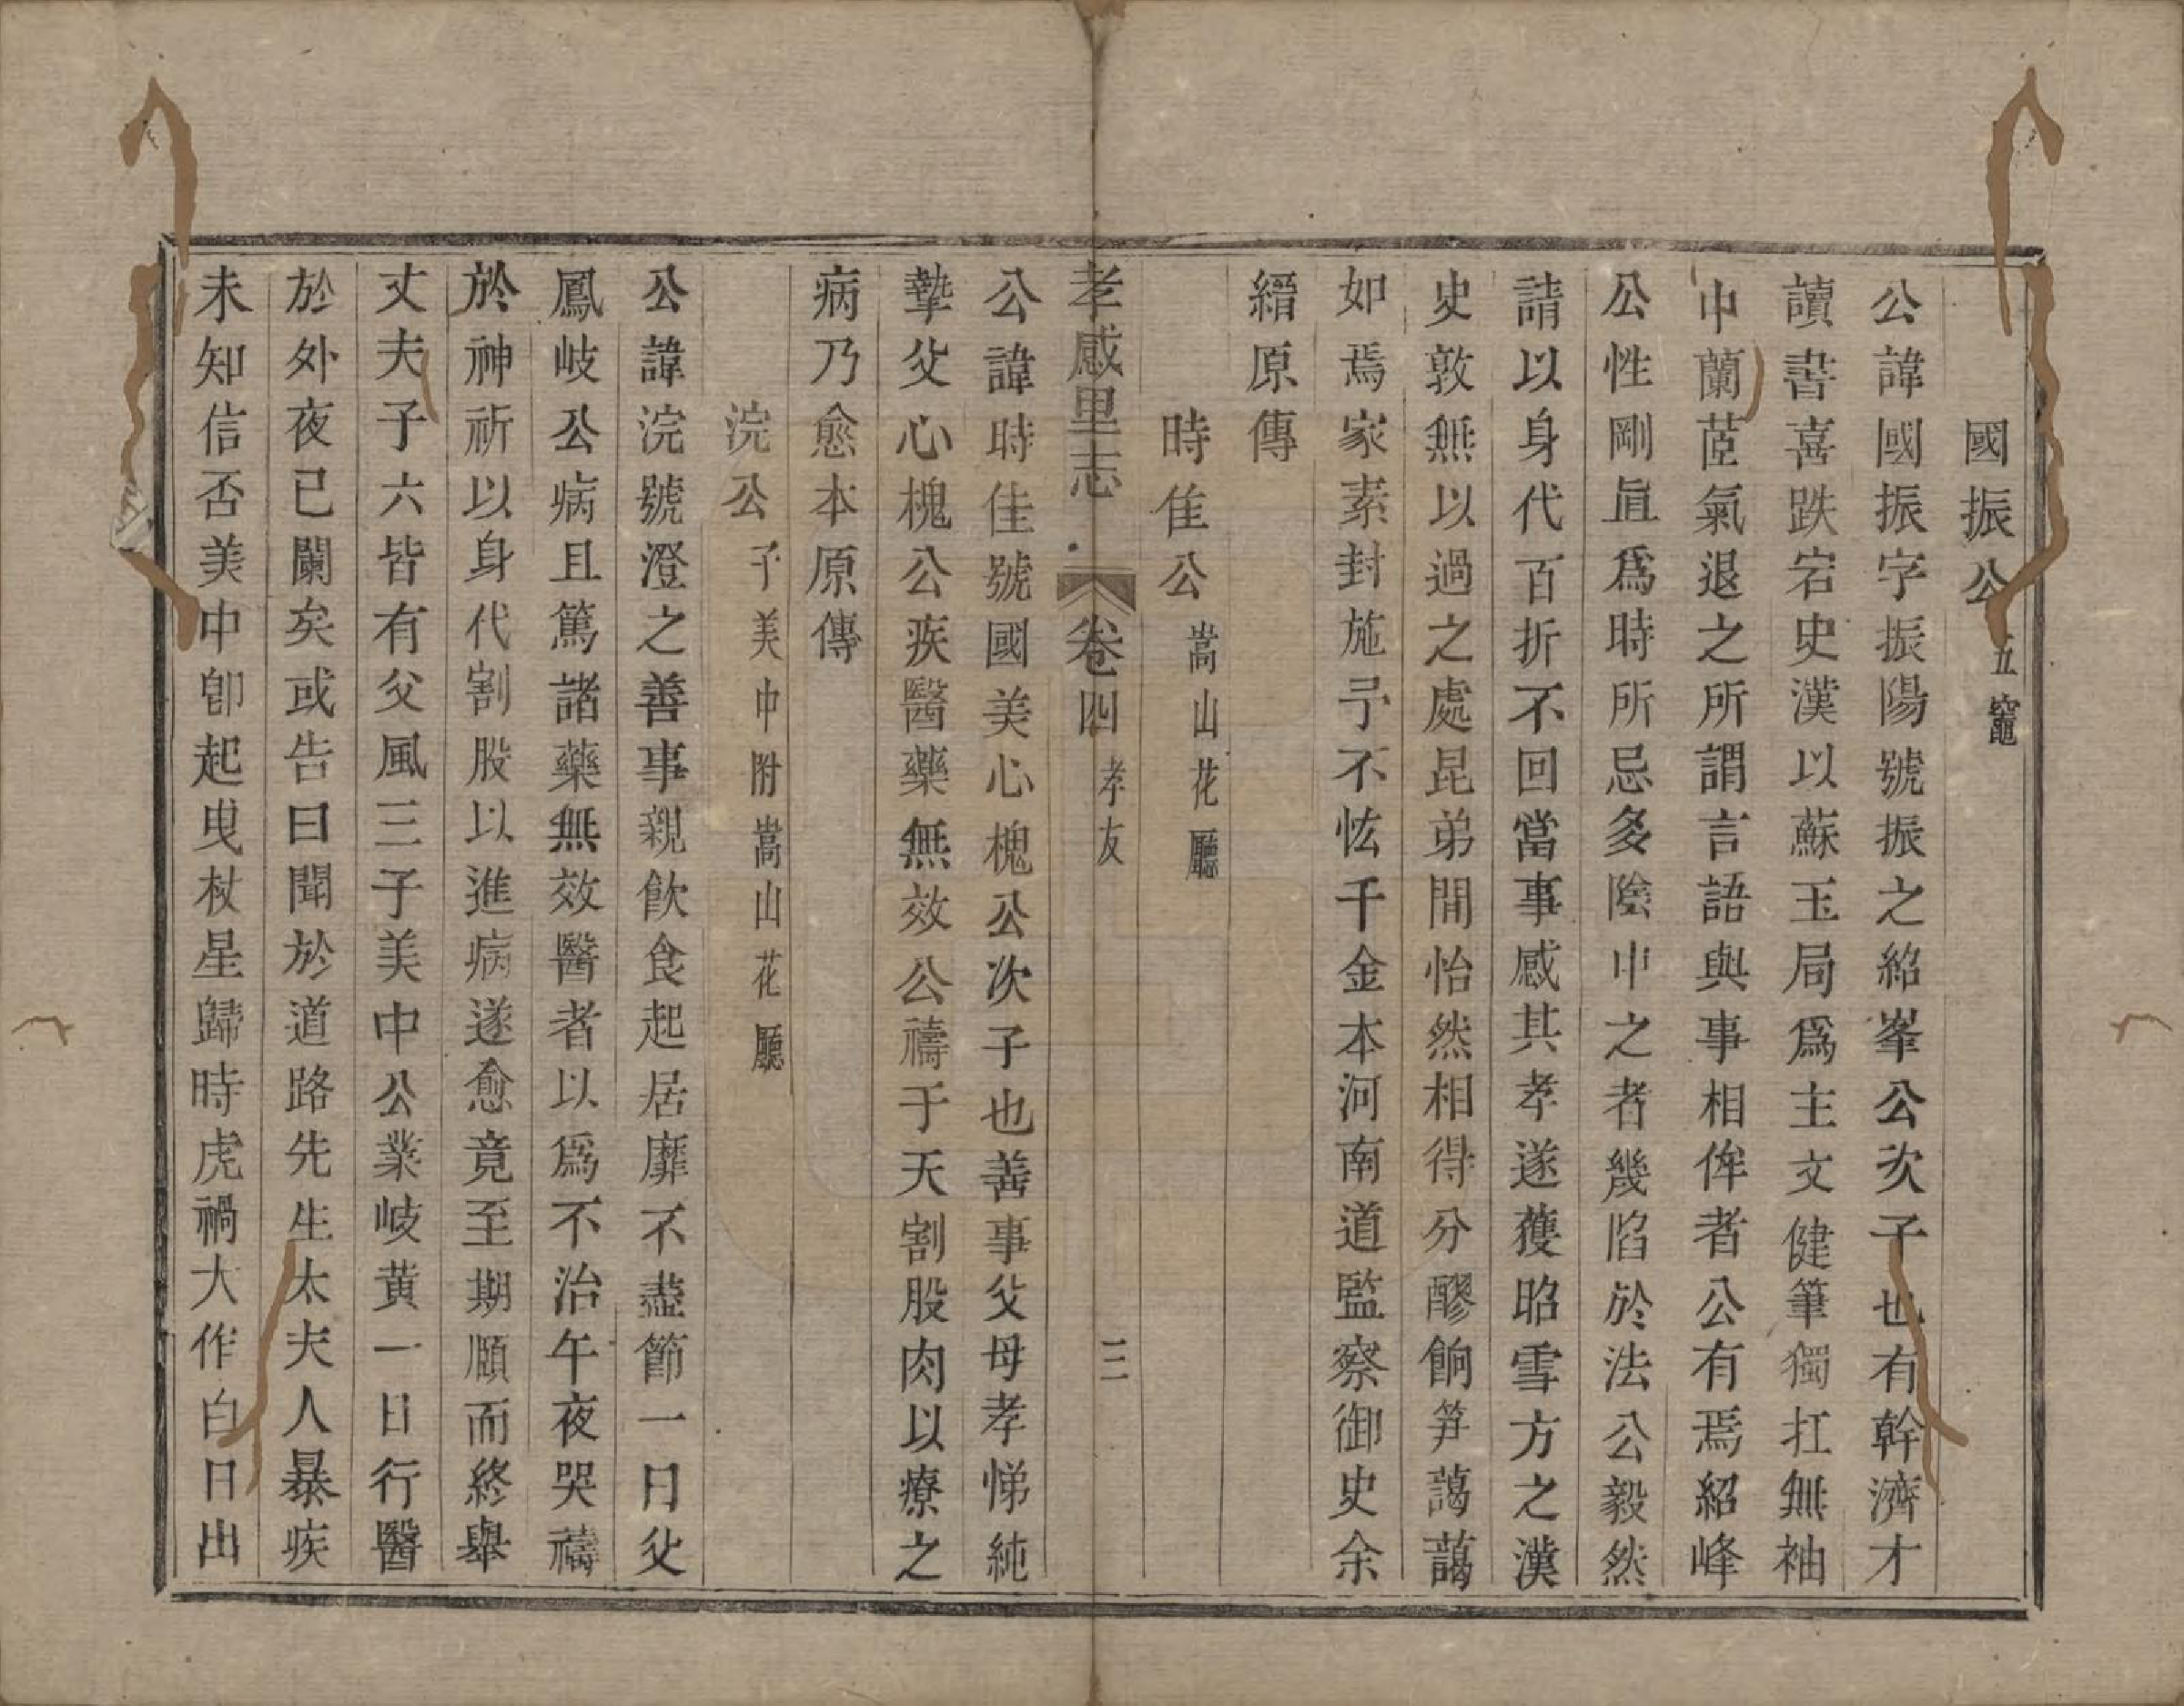 國振公 五竈
公諱國振字振陽號振之紹峯公次子也有幹濟才
讀書喜跌宕史漢以蘇玉局爲主文健筆獨扛無袖
中蘭茝氣退之所謂言語與事相侔者公有焉紹峰
公性剛直爲時所忌多陰中之者幾陷於法公毅然
請以身代百折不回當事感其孝遂獲昭雪方之漢
史敦無以過之處昆弟間怡然相得分醪餉笋藹藹
如焉家素封施予不恡千金本河南道監察御史余
縉原傳
時隹公 嵩山花廳
公諱時佳號國美心槐公次子也善事父母孝悌純
摯父心槐公疾醫藥無效公禱于天割股肉以療之
病乃愈本原傳
浣公 子美中附嵩山花廳
公諱浣號澄之善事親飲食起居靡不盡節一日父
鳳岐公病且篤諸藥無效醫者以爲不治午夜哭禱
於神祈以身代割股以進病遂愈竟至期頤而終舉
丈夫子六皆有父風三子美中公業岐黄一日行醫
於外夜已闌矣或告曰聞於道路先生太夫人暴疾
未知信否美中卽起曳杖星歸時虎禍大作白日出
孝感里志 卷四 孝友 三